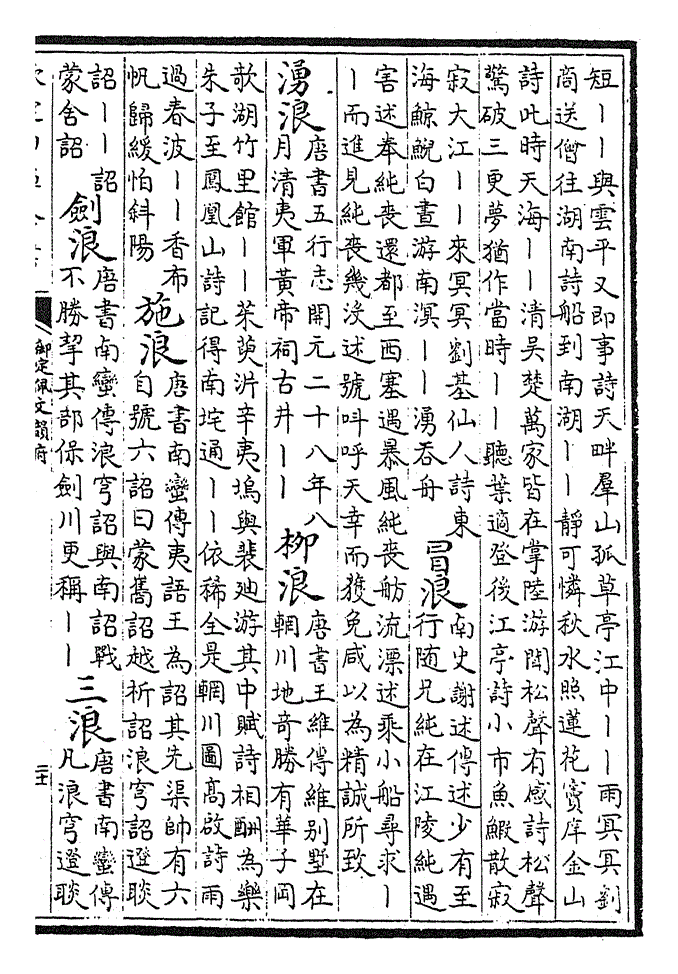 短丨丨與雲平又即事詩天畔羣山孤草亭江中丨丨雨冥冥劉
商送僧往湖南詩船到南湖丨丨靜可憐秋水照蓮花竇庠金山
詩此時天海丨丨清吳楚萬家皆在掌陸游聞松聲有感詩松聲
驚破三更夢猶作當時丨丨聽葉適登後江亭詩小市魚鰕散寂
寂大江丨丨來冥冥劉基仙人詩東
海鯨鯢白晝游南溟丨丨湧吞舟
冒浪
南史謝述傳述少有至
行隨兄純在江陵純遇
害述奉純喪還都至西塞遇暴風純喪舫流漂述乘小船尋求丨
丨而進見純喪幾没述號叫呼天幸而獲免咸以為精誠所致
湧浪
唐書五行志開元二十八年八
月清夷軍黃帝祠古井丨丨
柳浪
唐書王維傳維别墅在
輞川地奇勝有華子岡
歌湖竹里館丨丨茱萸沜辛夷塢與裴迪游其中賦詩相酬為樂
朱子至鳳凰山詩記得南垞通丨丨依稀全是輞川圖高啟詩雨
過春波丨丨香布
帆歸緩怕斜陽
施浪
唐書南蠻傳夷語王為詔其先渠帥有六
自號六詔曰蒙雟詔越析詔浪穹詔邆睒
詔丨丨詔
蒙舍詔
劍浪
唐書南蠻傳浪穹詔與南詔戰
不勝挈其部保劍川更稱丨丨
三浪
唐書南蠻傳
凡浪穹邆睒
御定佩文韻府